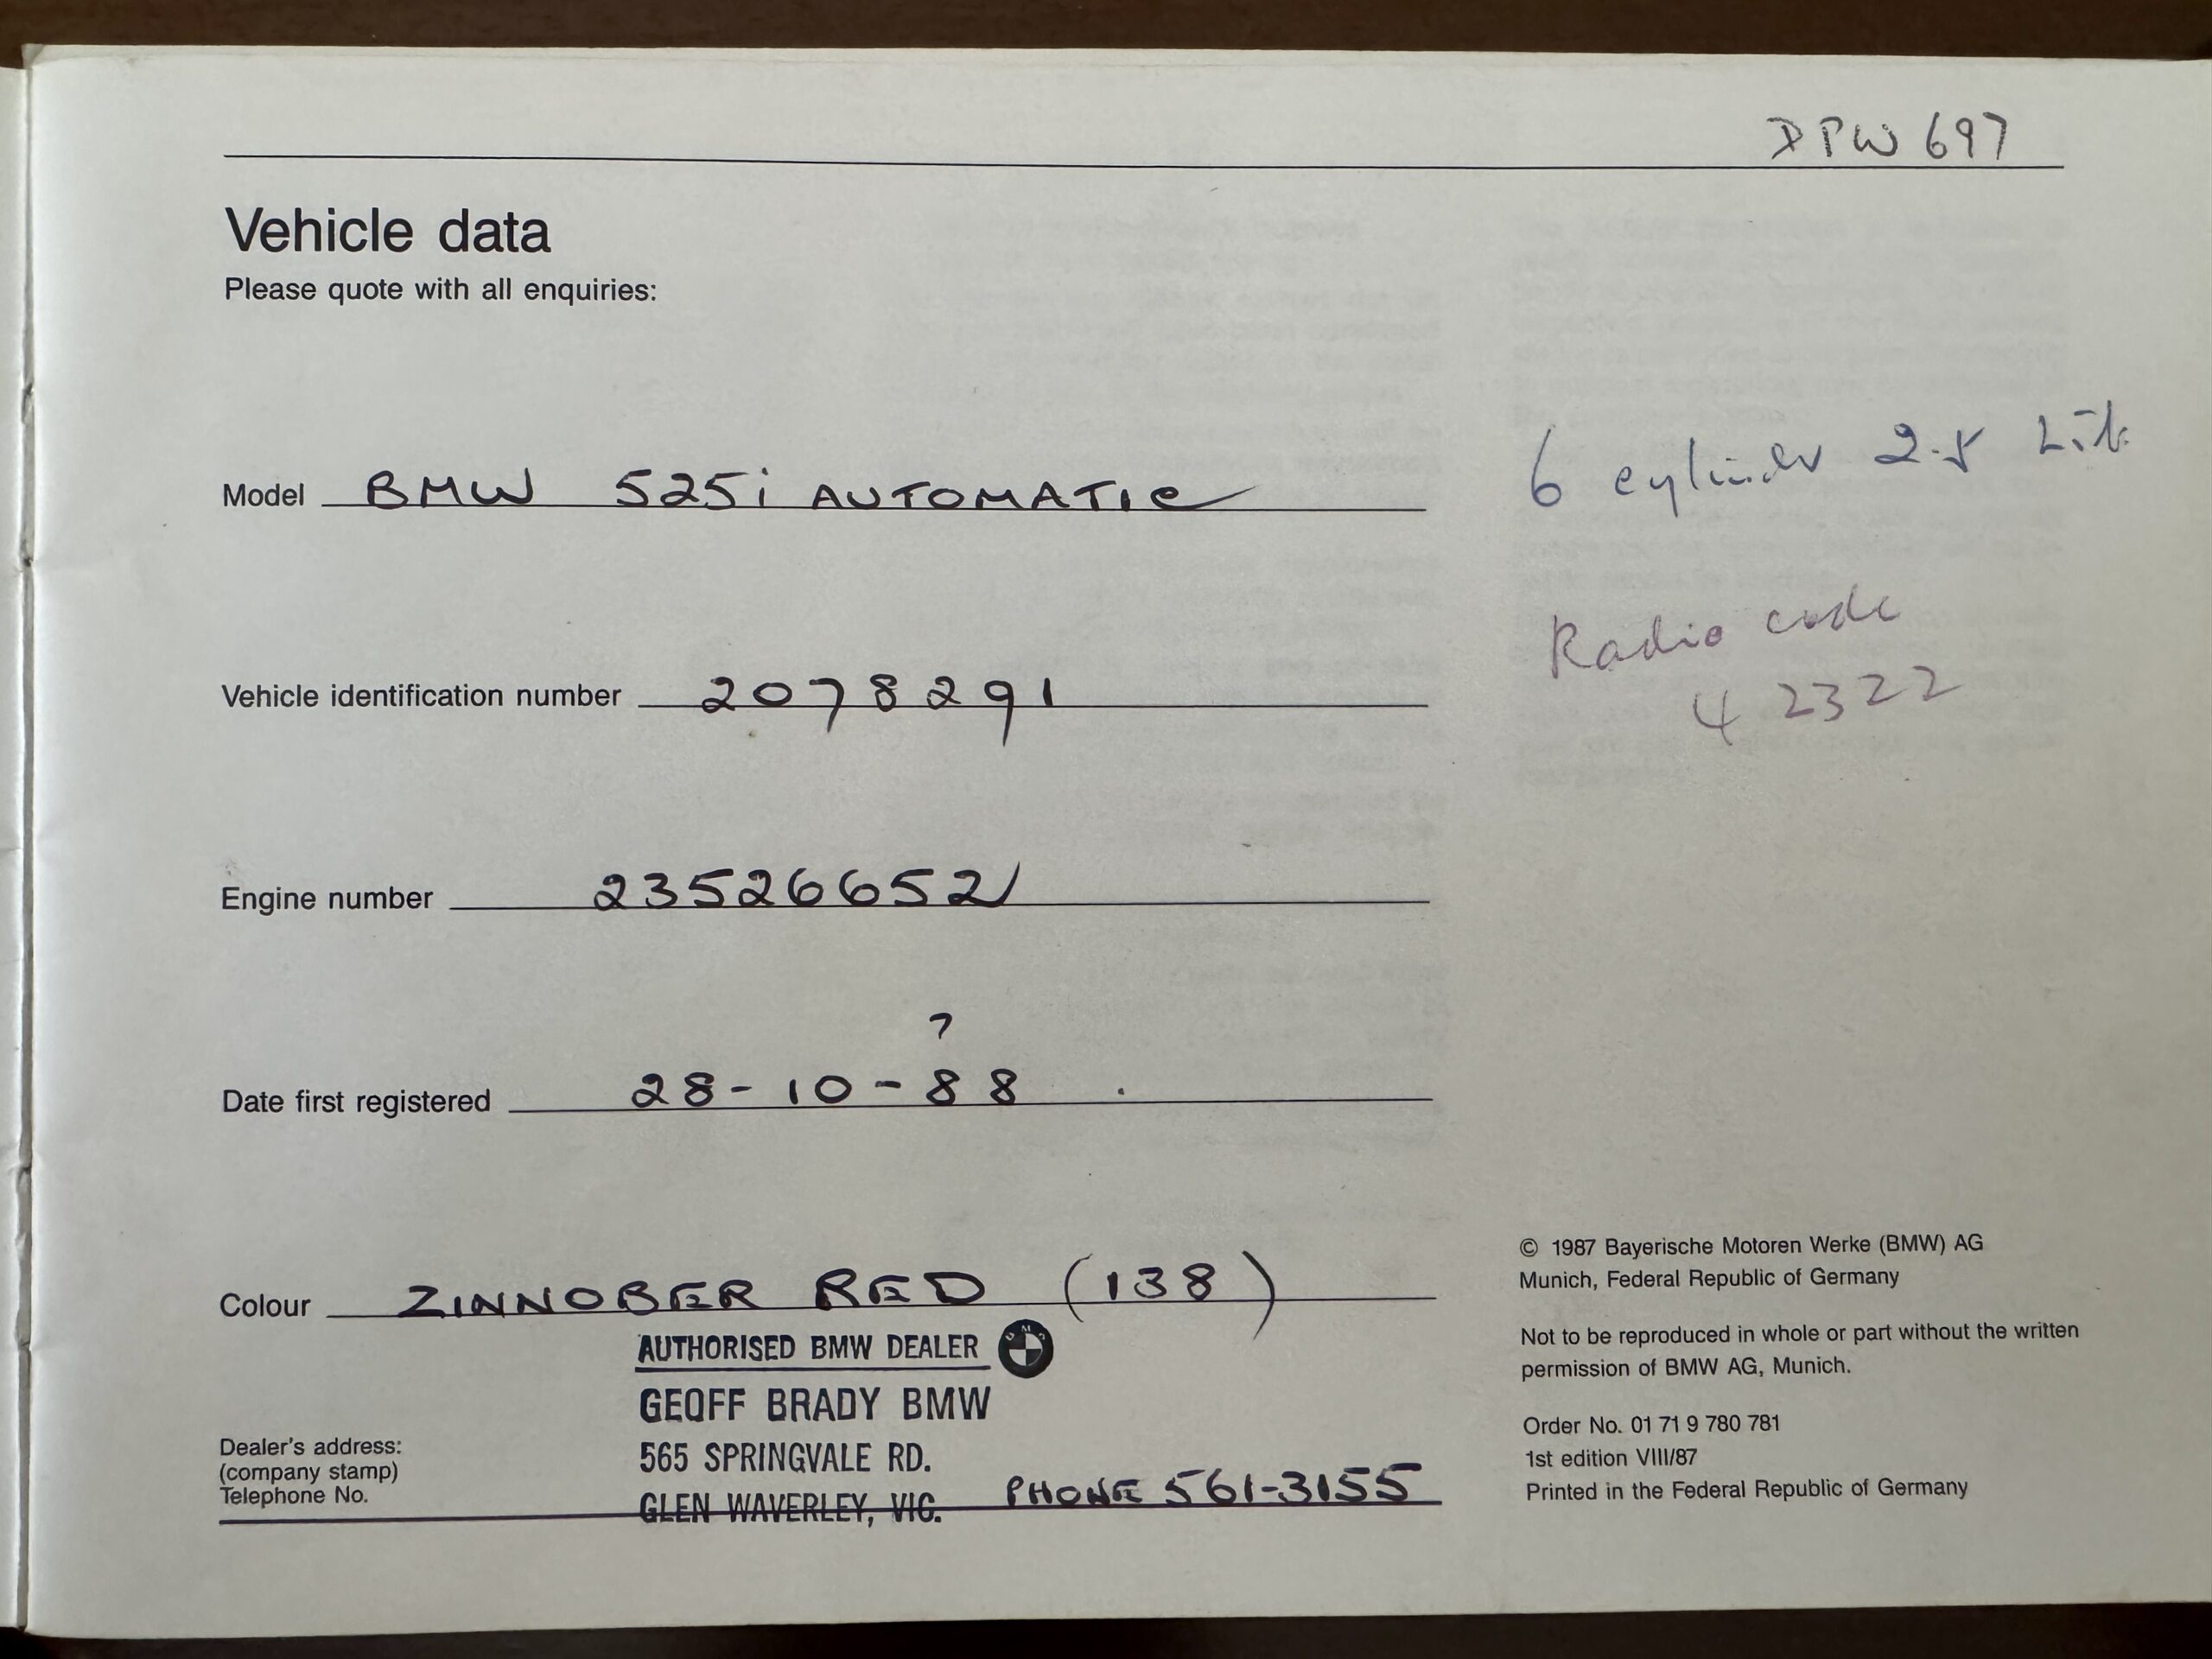 DPW 697
Vehicle data
Please quote with all enquiries:
Model BMW 525i AUTOMATIC
6 cylinder 2.5 Lit
Vehicle identification number 2078291
Radio code
42322
Engine number 23526652
?
Date first registered 28-10-88
Colour ZINNOBER RED (138)
AUTHORISED BMW DEALER
GEOFF BRADY BMW
565 SPRINGVALE RD.
GLEN WAVERLEY, VIC.
PHONE 561-3155
Dealer's address:
(company stamp)
Telephone No.
© 1987 Bayerische Motoren Werke (BMW) AG
Munich, Federal Republic of Germany
Not to be reproduced in whole or part without the written
permission of BMW AG, Munich.
Order No. 01 71 9 780 781
1st edition VIII/87
Printed in the Federal Republic of Germany